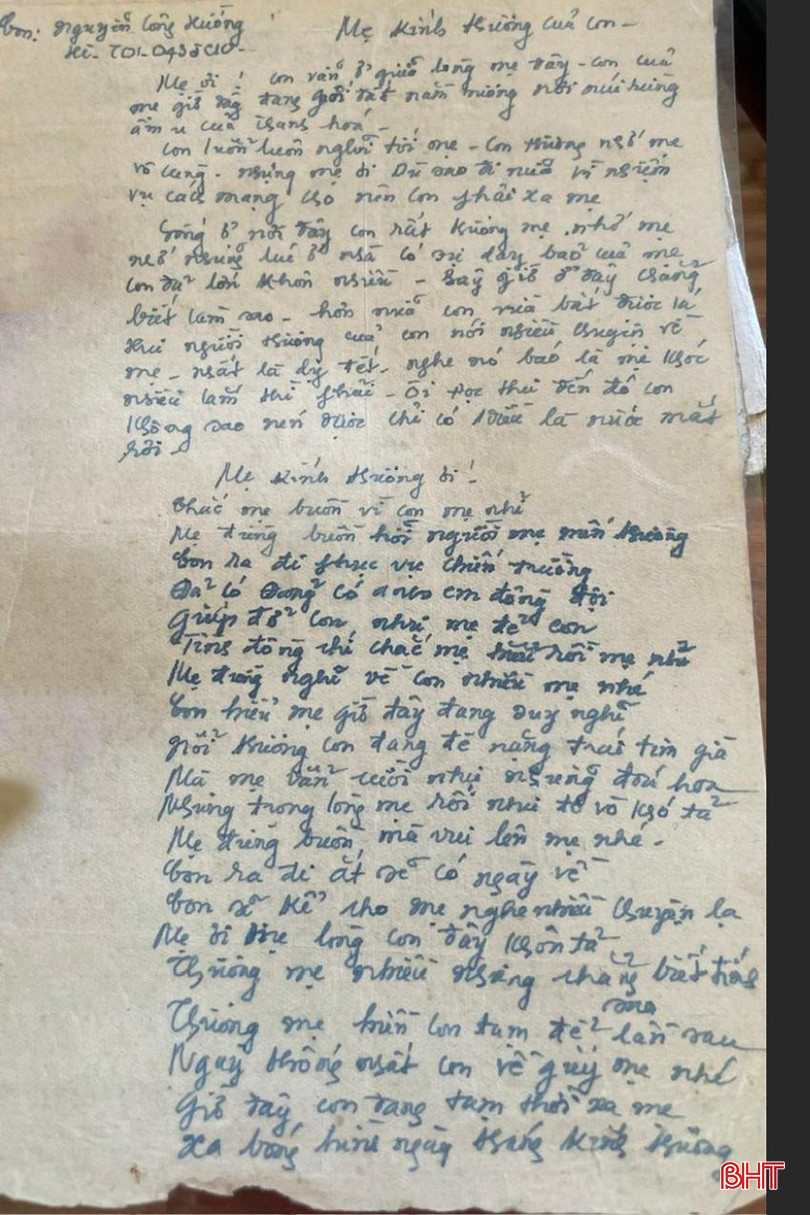 Con: Nguyễn Công Hường
Mẹ Kính thương của con -
Mẹ ơi! con vẫn ở giữa lòng mẹ đây - con của
mẹ giờ đây đang gối đất nằm sương nơi núi rừng
âm u của Thanh hoá -
con luôn luôn nghĩ tới mẹ - Con thương nhớ mẹ
vô cùng - nhưng mẹ ơi Dù sao đi nữa vì nhiệm
vụ cách mạng cho nên con phải xa mẹ
Sống ở nơi đây con rất thương mẹ, nhớ mẹ
nhớ những lúc ở nhà có sự dạy bảo của mẹ
con đã lớn khôn nhiều - bây giờ ở đây chẳng
biết làm sao - hơn nữa con vừa bắt được lá
thư người thương của con nói nhiều chuyện về
mẹ - nhất là dịp tết - nghe nó bảo là mẹ khóc
nhiều lắm thì phải - Ôi đọc thư đến đó con
không sao nén được chỉ có là nước mắt
rồi -
Mẹ kính thương ơi!
Chắc mẹ buồn vì con mẹ nhỉ
Mẹ đừng buồn hỡi người mẹ mến thương
Con ra đi phục vụ chiến trường
Đã có Đảng có anh em đồng đội
Giúp đỡ con như mẹ đẻ con
Tình đồng chí chắc mẹ hiểu rồi mẹ nhỉ
Mẹ đừng nghĩ về con nhiều mẹ nhé
Con hiểu mẹ giờ đây đang suy nghĩ
nỗi thương con đang đè nặng trái tim già
Mà mẹ vẫn cười như những đoá hoa
Nhưng trong lòng mẹ rối như tơ vò khó tả
Mẹ đừng buồn, mà vui lên mẹ nhé -
Con ra đi ắt sẽ có ngày về
Con sẽ kể cho mẹ nghe nhiều chuyện lạ
Mẹ ơi mẹ lòng con đây khôn tả
Thương mẹ nhiều nhưng chẳng biết
Thương mẹ hiền con tạm để lần sau
Ngày thống nhất con về quỳ mẹ nhé
Giờ đây con đang tạm thời xa mẹ
Xa bóng hình ngày tháng kính thương
BHT